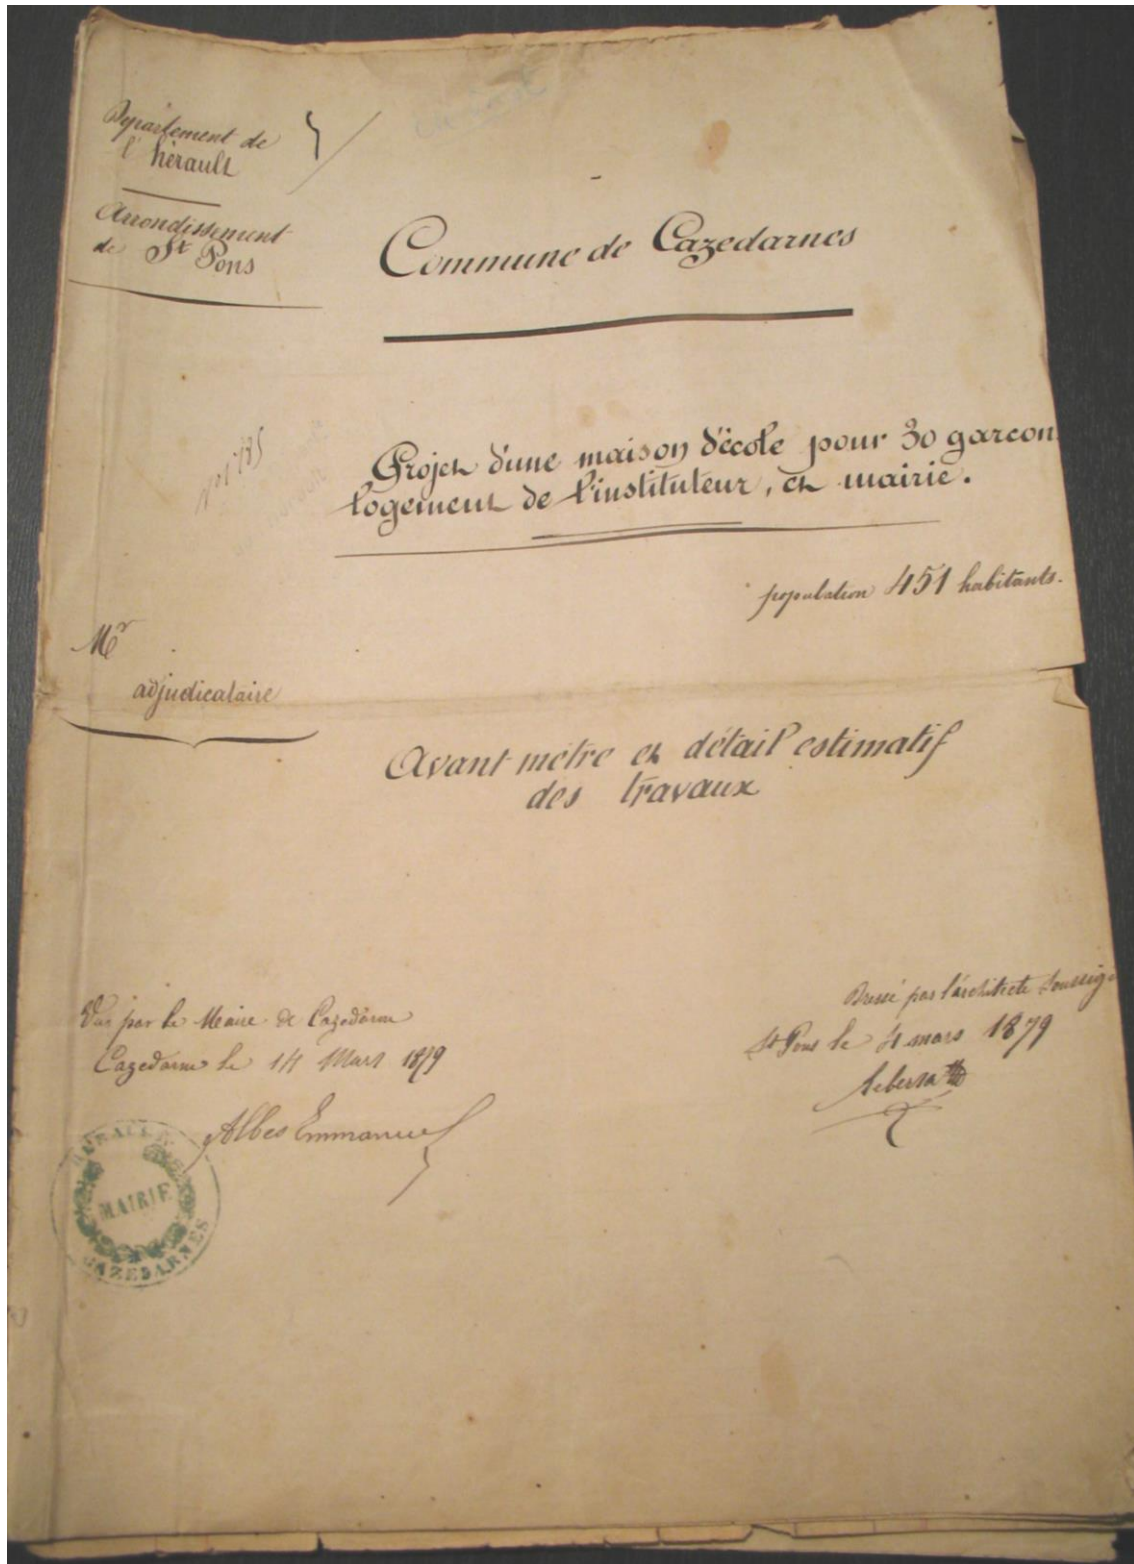 Département de
l'hérault
Arrondissement
de St Pons
Commune de Cazedarnes
Projet d'une maison d'école pour 30 garçon
logement de l'instituteur, et mairie.
population 451 habitants.
Mr
adjudicataire
Avant métre et détail estimatif
des travaux
Vu par le Maire de Cazedarne
Cazedarne le 14 Mars 1879
Albes Emmanuel
Dressé par l'architecte soussig
St Pons le 4 mars 1879
MAIRIE
CAZEDARNES